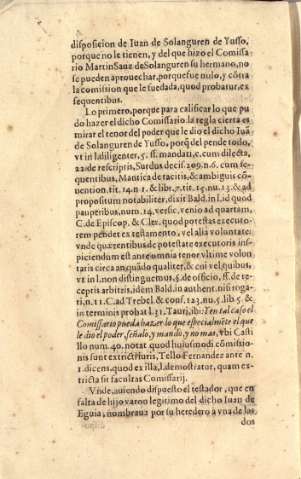 disposicion de Iuan de Solanguren de Yusso,
porque no le tienen, y del que hizo el Comissa-
rio Martin Saez de Solanguren su hermano, no
se pueden aprouechar, porque fue nulo, y cõtra
la comission que le fue dada, quod probatur, ex
sequentibus.
Lo primero, porque para calificar lo que pu-
do hazer el dicho Comissario, la regla cierta es
mirar el tenor del poder que le dio el dicho Iuã
de Solanguren de Yusso, porq̃ del pende todo,
vt in l. diligenter, 5. ff. mandati, c. cum dilecta,
22. de rescriptis, Surdus decis. 209. n. 6. cum se-
quentibus, Mantica de tacitis, & ambiguis cõ-
uention. tit. 14. n. 1. & lib. 7. tit. 15. nu. 13. & ad
propositum notabiliter, dixit Bald. in l. id quod
pauperibus, num. 14. versic. venio ad quartam,
C. de Episcop. & Cler. quod potestas executo-
rem pendet ex testamento, vel alia voluntate:
vnde quærentibus de potestate executoris ins-
piciendum est ante omnia tenor vltime volun-
taris circa an, quãdo qualiter, & cui vel quibus,
vt in l. non distinguemus, 5. de officio, ff. de re-
ceptis arbitris, idem Bald. in authent. nisi roga-
ti, n. 11. C. ad Trebel. & cons. 123. nu. 5. lib. 5. &
in terminis probat l. 31. Tauri, ibi: Y en tal caso el
Comissario pueda hazer lo que especialmẽte el que
le dio el poder, señalò, y mandò, y no mas, vbi Casti
llo num. 40. notat quod huiusmodi cõmissio-
nis sunt strictæ iuris, Tello Fernandez ante n.
1. dicens, quod ex illa, l. demostratur, quam ex-
tricta sit facultas Comissarij.
Vnde, auiendo dispuesto el testador, que en
falta de hijo varon legitimo del dicho Iuan de
Eguia, nombraua por su heredero à vna de las
dos